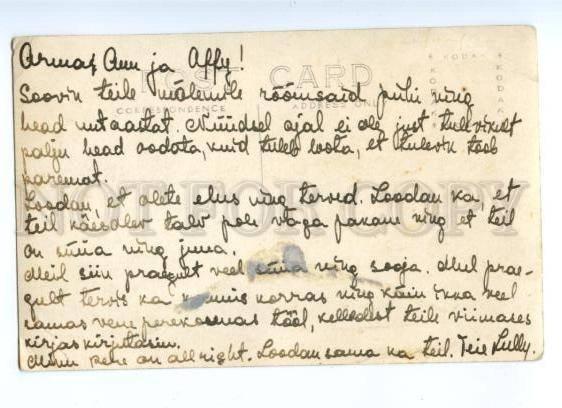 Armas Ann ja Affy!
POST CARD
CORRESPONDENCE ADDRESS ONLY
KODAK KODAK
Soovin teile mõlemile rõõmsaid pühi ning
head uut aastat. Nüüdsel ajal ei ole just tulevikult
palju head oodata, kuid tuleb loota, et tulevik toob
paremat.
Loodan, et olete elus ning terved. Loodan ka, et
teil käesolev talv pole väga pakane ning et teil
on süüa ning juua.
Meil siin praegult veel süüa ning sooja. Mul prae-
gult tervis ka korras ning käin ikka veel
samas vene perekonnas tööl, kelledest teile viimases
kirjas kirjutasin.
Minu pere on all right. Loodan sama ka teil. Teie Lully.
NOT FOR COPY